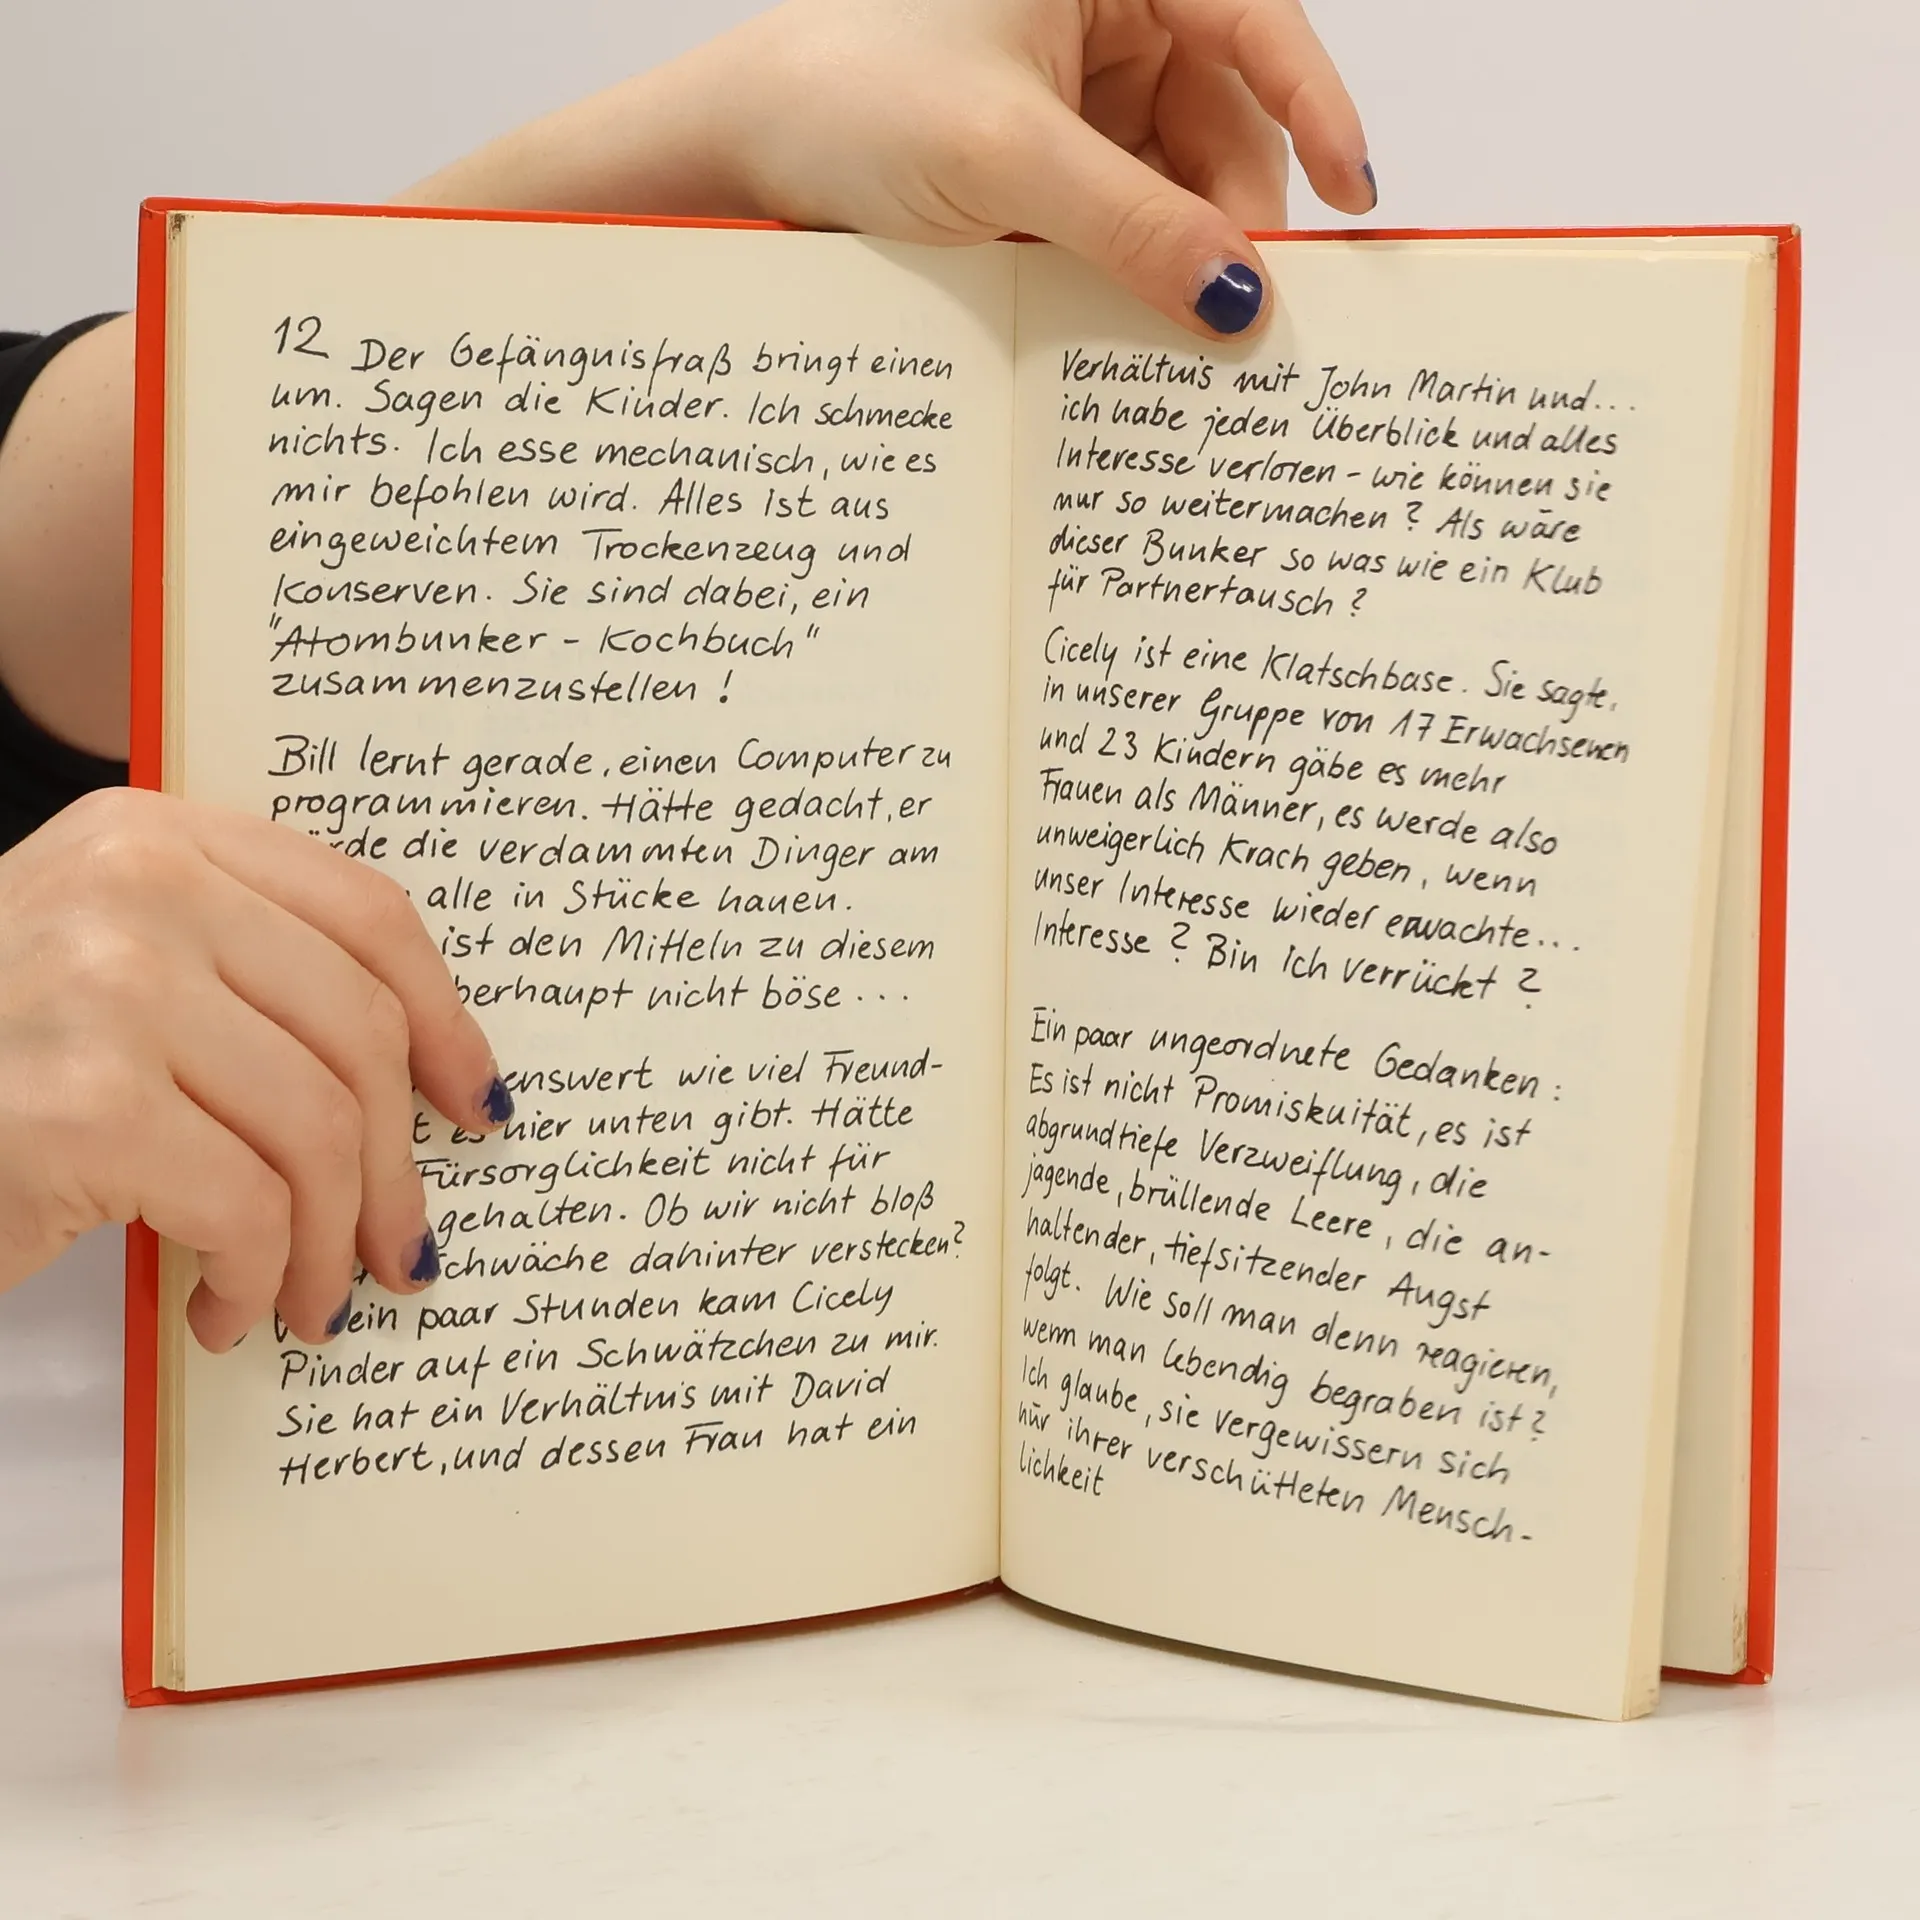 12 Der Gefängnisfraß bringt einen
um. Sagen die Kinder. Ich schmecke
nichts. Ich esse mechanisch, wie es
mir befohlen wird. Alles ist aus
eingeweichtem Trockenzeug und
Konserven. Sie sind dabei, ein
"Atombunker - Kochbuch"
zusammenzustellen!
Bill lernt gerade, einen Computer zu
programmieren. Hätte gedacht, er
die verdammten Dinger am
alle in Stücke hauen.
ist den Mitteln zu diesem
nicht böse...
wie viel Freund-
es hier unten gibt. Hätte
Fürsorglichkeit nicht für
gehalten. Ob wir nicht bloß
dahinter verstecken?
ein paar Stunden kam Cicely
Pinder auf ein Schwätzchen zu mir.
Sie hat ein Verhältnis mit David
Herbert, und dessen Frau hat ein
Verhältnis mit John Martin und...
ich habe jeden Überblick und alles
Interesse verloren - wie können sie
nur so weitermachen? Als wäre
dieser Bunker so was wie ein Klub
für Partnertausch?
Cicely ist eine Klatschbase. Sie sagte,
in unserer Gruppe von 17 Erwachsenen
und 23 Kindern gäbe es mehr
Frauen als Männer, es werde also
unweigerlich Krach geben, wenn
unser Interesse wieder erwachte...
Interesse? Bin ich verrückt?
Ein paar ungeordnete Gedanken:
Es ist nicht Promiskuität, es ist
abgrundtiefe Verzweiflung, die
jagende, brüllende Leere, die an-
haltender, tiefsitzender Angst
folgt. Wie soll man denn reagieren,
wenn man lebendig begraben ist?
Ich glaube, sie vergewissern sich
nur ihrer verschütteten Mensch-
lichkeit